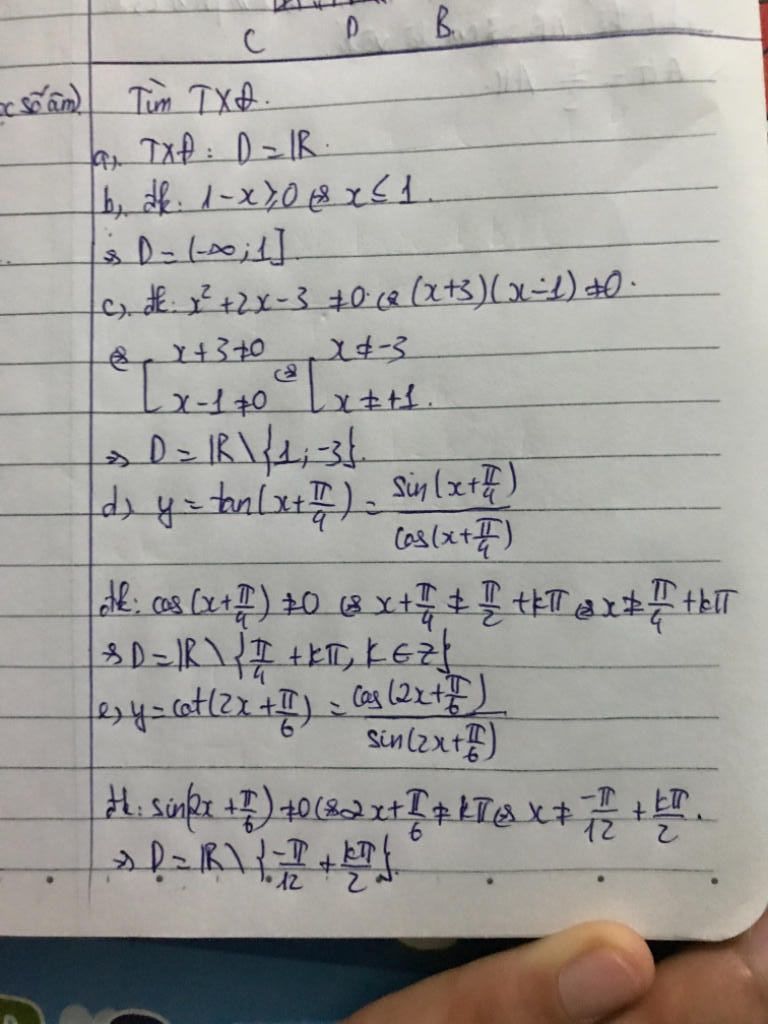 C D B
x số âm) Tìm TXĐ.
a, TXĐ: D = ℝ.
b, đk: 1-x ≥ 0 ⇔ x ≤ 1.
⇒ D = (-∞; 1]
c, đk: x² + 2x - 3 ≠ 0 ⇔ (x+3)(x-1) ≠ 0.
⇔ [ x+3 ≠ 0 ⇔ [ x ≠ -3
x-1 ≠ 0 x ≠ +1.
⇒ D = ℝ \ {1; -3}.
d, y = tan(x + π/4) = sin(x + π/4) / cos(x + π/4)
đk: cos(x + π/4) ≠ 0 ⇔ x + π/4 ≠ π/2 + kπ ⇔ x ≠ π/4 + kπ
⇒ D = ℝ \ {π/4 + kπ, k ∈ Z}
e, y = cot(2x + π/6) = cos(2x + π/6) / sin(2x + π/6)
đk: sin(2x + π/6) ≠ 0 ⇔ 2x + π/6 ≠ kπ ⇔ x ≠ -π/12 + kπ/2.
⇒ D = ℝ \ {-π/12 + kπ/2}.